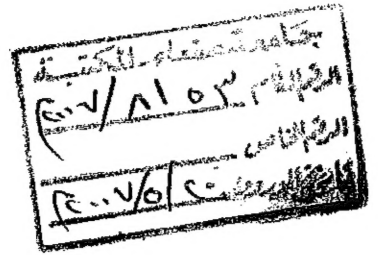 جامعة صنعاء - المكتبة
الرقم العام ٨١٥٣ / ٢٠٠٧
الرقم الخاص
٢٠ / ٥ / ٢٠٠٧